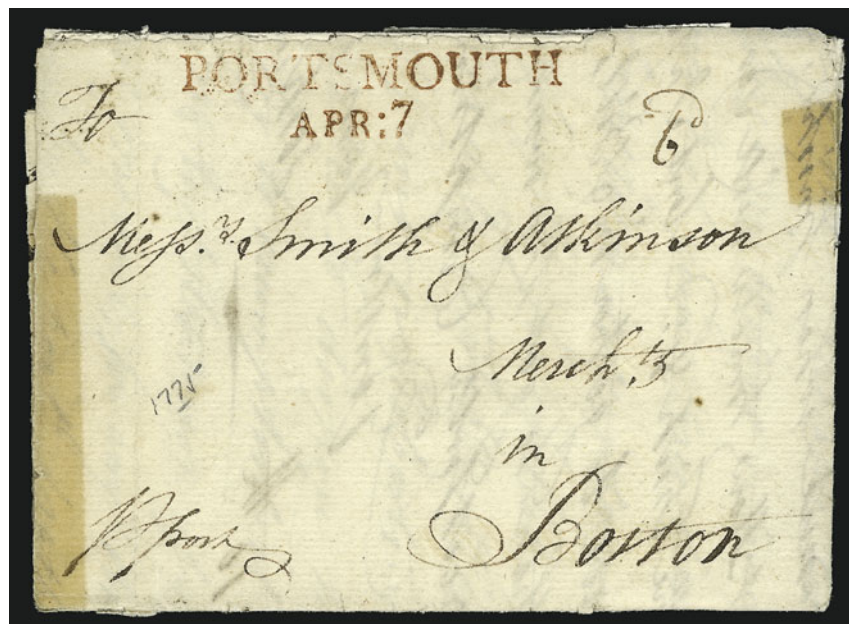 PORTSMOUTH
APR:7
To
6d
Messrs. Smith & Atkinson
Mercht.s
in
Boston
1775
P post